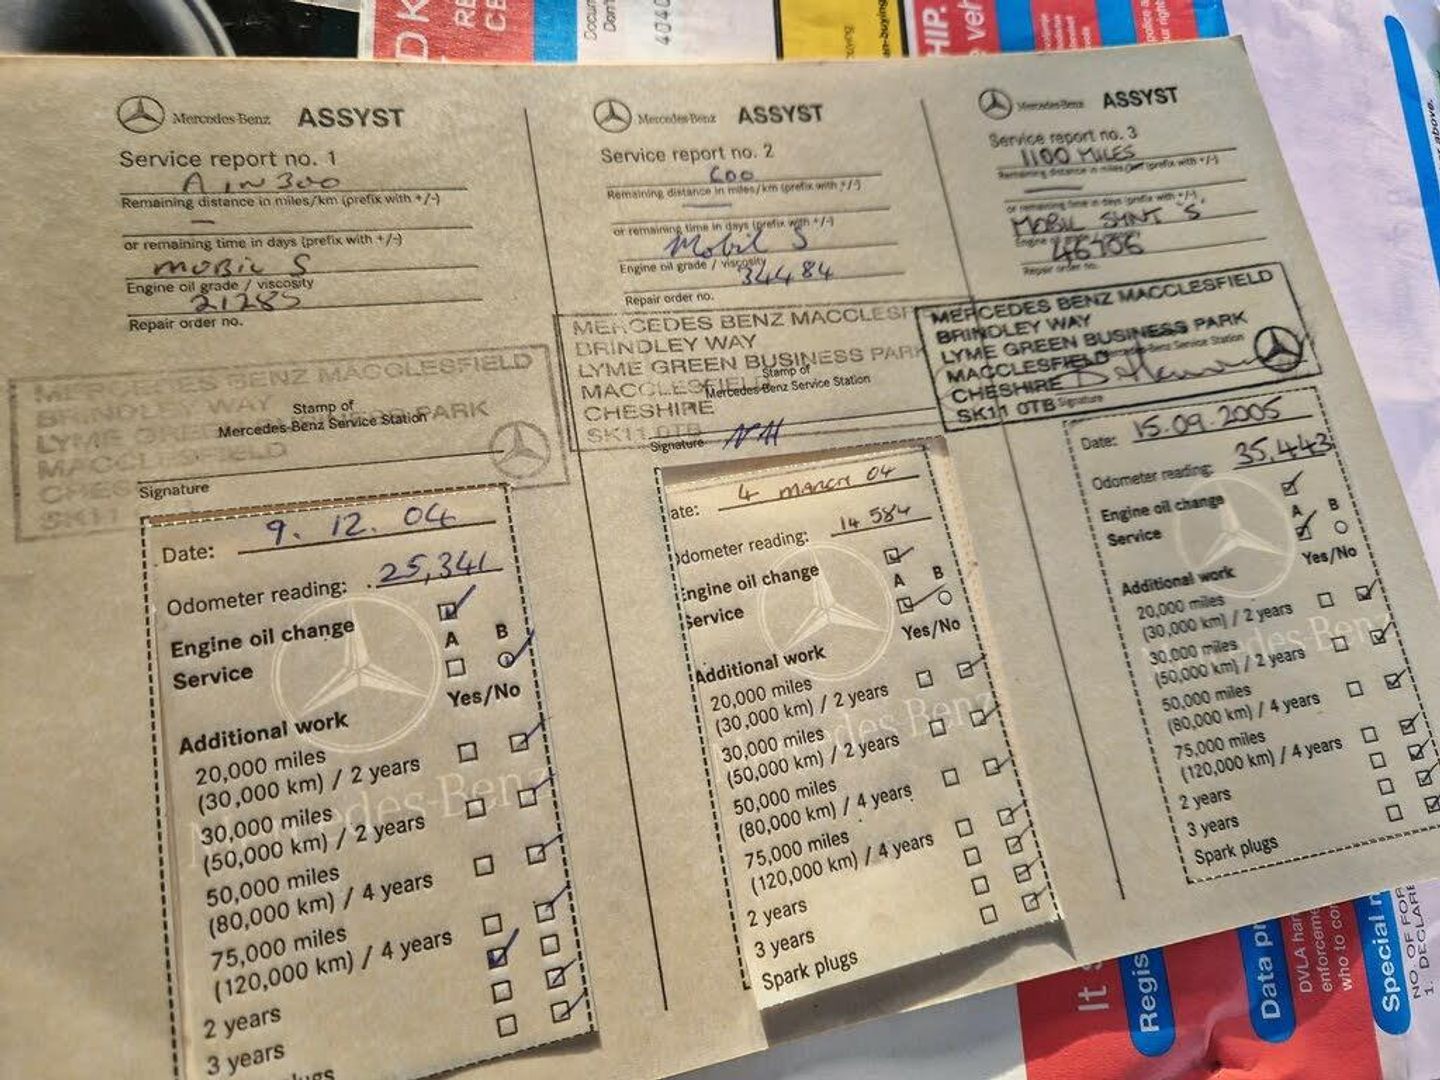 Mercedes-Benz ASSYST
Service report no. 1
A IN 300
Remaining distance in miles/km (prefix with +/-)
—
or remaining time in days (prefix with +/-)
MOBIL S
Engine oil grade / viscosity
21285
Repair order no.
MERCEDES BENZ MACCLESFIELD
BRINDLEY WAY
LYME GREEN BUSINESS PARK
MACCLESFIELD
CHESHIRE
Stamp of
Mercedes-Benz Service Station
Signature
Date: 9. 12. 04
Odometer reading: 25,341
Engine oil change
A B
Service
Yes/No
Additional work
20,000 miles
(30,000 km) / 2 years
30,000 miles
(50,000 km) / 2 years
50,000 miles
(80,000 km) / 4 years
75,000 miles
(120,000 km) / 4 years
2 years
3 years
Mercedes-Benz ASSYST
Service report no. 2
600
Remaining distance in miles/km (prefix with +/-)
—
or remaining time in days (prefix with +/-)
Mobil S
Engine oil grade / viscosity
34484
Repair order no.
MERCEDES BENZ MACCLESF
BRINDLEY WAY
LYME GREEN BUSINESS PARK
MACCLESFIELD
CHESHIRE
SK11 0TB
Stamp of
Mercedes-Benz Service Station
Signature NH
ate: 4 MARCH 04
Odometer reading: 14 584
Engine oil change
A B
Service
Yes/No
Additional work
20,000 miles
(30,000 km) / 2 years
30,000 miles
(50,000 km) / 2 years
50,000 miles
(80,000 km) / 4 years
75,000 miles
(120,000 km) / 4 years
2 years
3 years
Spark plugs
Mercedes-Benz ASSYST
Service report no. 3
1100 MILES
Remaining distance in miles/km (prefix with +/-)
—
or remaining time in days (prefix with +/-)
MOBIL SYNT 'S'
Engine
Repair order no.
MERCEDES BENZ MACCLESFIELD
BRINDLEY WAY
LYME GREEN BUSINESS PARK
MACCLESFIELD
CHESHIRE
SK11 0TB
Mercedes-Benz Service Station
Signature
Date: 15.09.2005
Odometer reading: 35,443
Engine oil change
A B
Service
Yes/No
Additional work
20,000 miles
(30,000 km) / 2 years
30,000 miles
(50,000 km) / 2 years
50,000 miles
(80,000 km) / 4 years
75,000 miles
(120,000 km) / 4 years
2 years
3 years
Spark plugs
It
Regis
Data pr
DVLA
enforceme
who to
Special
NO. OF FOR
1. DECLARE
above.